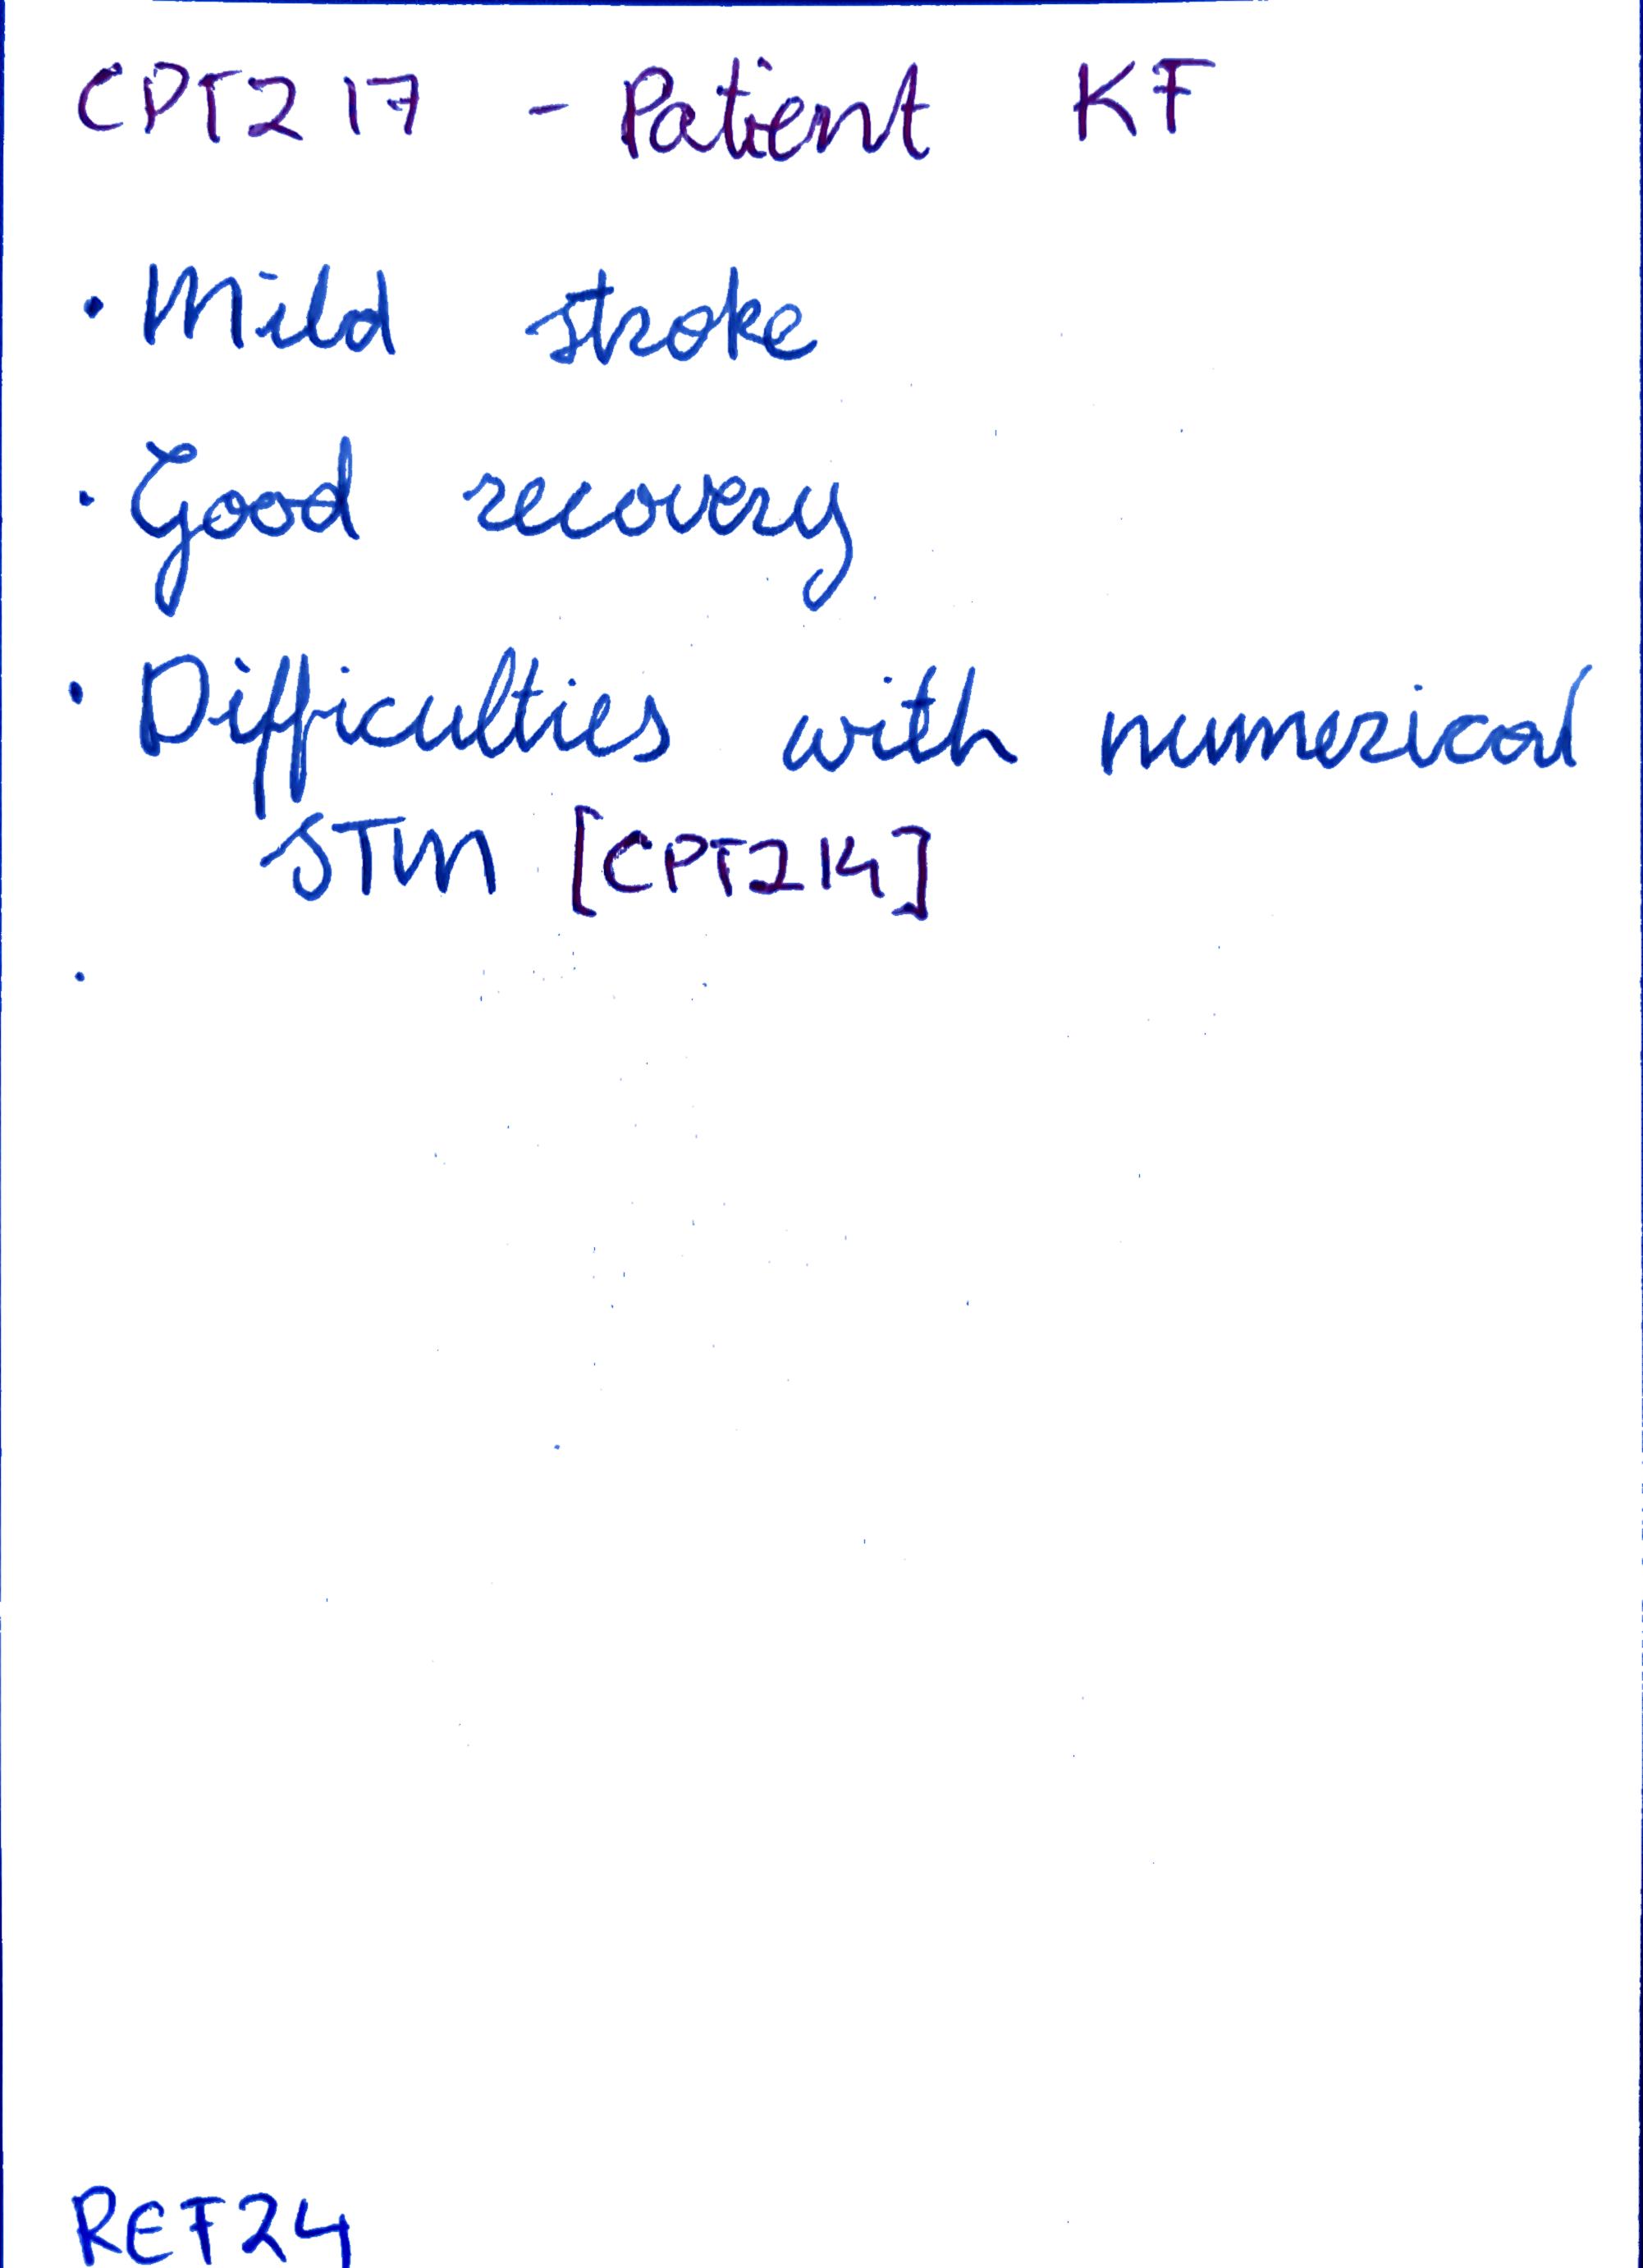 CPT217 - Patient KF
• Mild stroke
• Good recovery
• Difficulties with numerical
STM [CPT214]
•
REF24